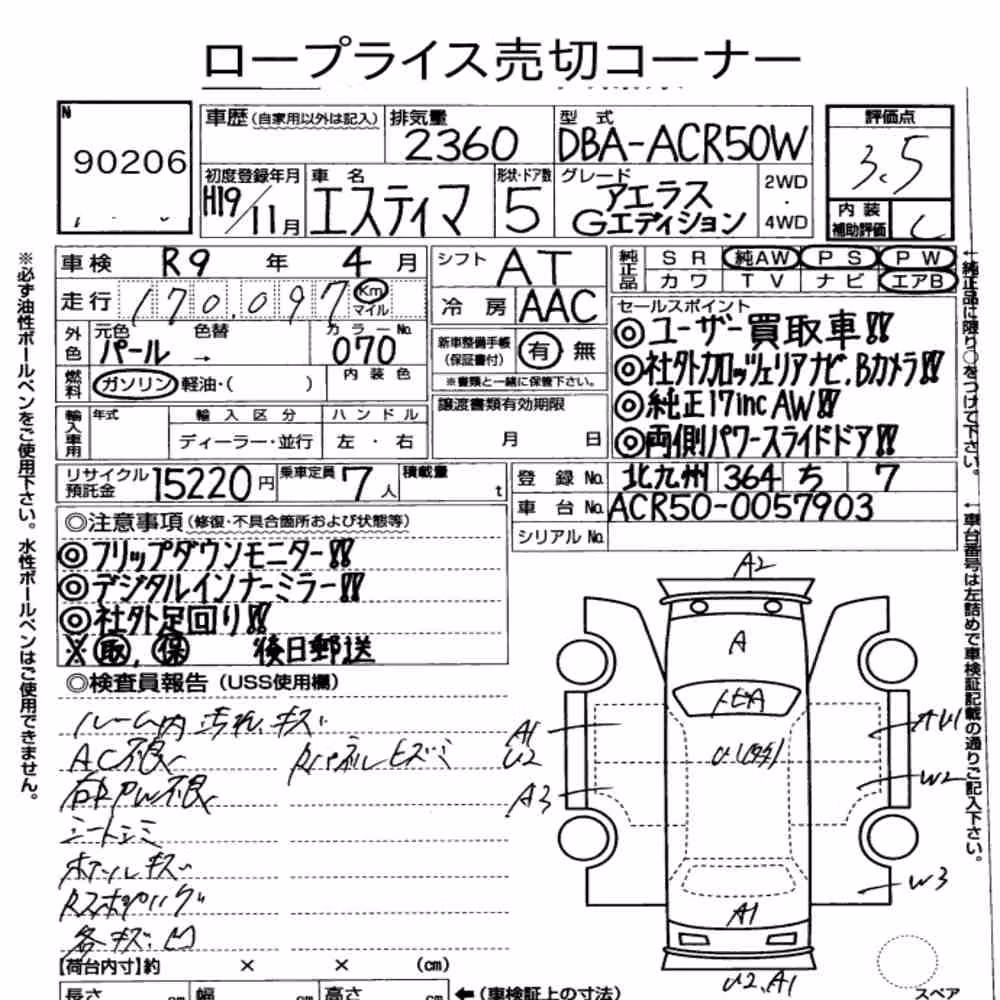 ロープライス売切コーナー
N
90206
車歴(自家用以外は記入)
排気量
2360
型式
DBA-ACR50W
評価点
3.5
初度登録年月
H19/11月
車名
エスティマ
形状・ドア数
5
グレード
アエラス
Gエディション
2WD
・
4WD
内装
補助評価
C
車検 R9年 4月
走行 170,097 Km
マイル
シフト AT
冷房 AAC
純正品
SR 純AW PS PW
カワ TV ナビ エアB
外色
元色 色替 カラーNo.
パール → 070
燃料
ガソリン・軽油・( )
内装色
新車整備手帳
(保証書付)
有 無
※書類と一緒に保管下さい。
セールスポイント
◎ユーザー買取車!!
◎社外カロッツェリアナビ、Bカメラ!!
◎純正17incAW!!
◎両側パワースライドドア!!
輸入車用
年式 輸入区分 ハンドル
ディーラー・並行 左・右
譲渡書類有効期限
月 日
リサイクル
預託金
15220円
乗車定員 7人
積載量 t
登録No. 北九州 364 ち 7
車台No. ACR50-0057903
シリアルNo.
◎注意事項(修復・不具合箇所および状態等)
◎フリップダウンモニター!!
◎デジタルインナーミラー!!
◎社外足回り!!
※取、保 後日郵送
◎検査員報告(USS使用欄)
ルーム内汚れ、キズ
AC不良 Rパネルヒズミ
右中PW不良
シートシミ
ホイールキズ
Rスポイラー
各キズ凹
【荷台内寸】約 × × (cm)
長さ cm 幅 cm 高さ cm ←(車検証上の寸法)
A2
A
トビA
A1
U2
A3
W2
W3
A1
U2、A1
スペア
※必ず油性ボールペンをご使用下さい。水性ボールペンはご使用できません。
←純正品に限り○をつけて下さい。
←車台番号は左詰めで車検証記載の通りご記入下さい。